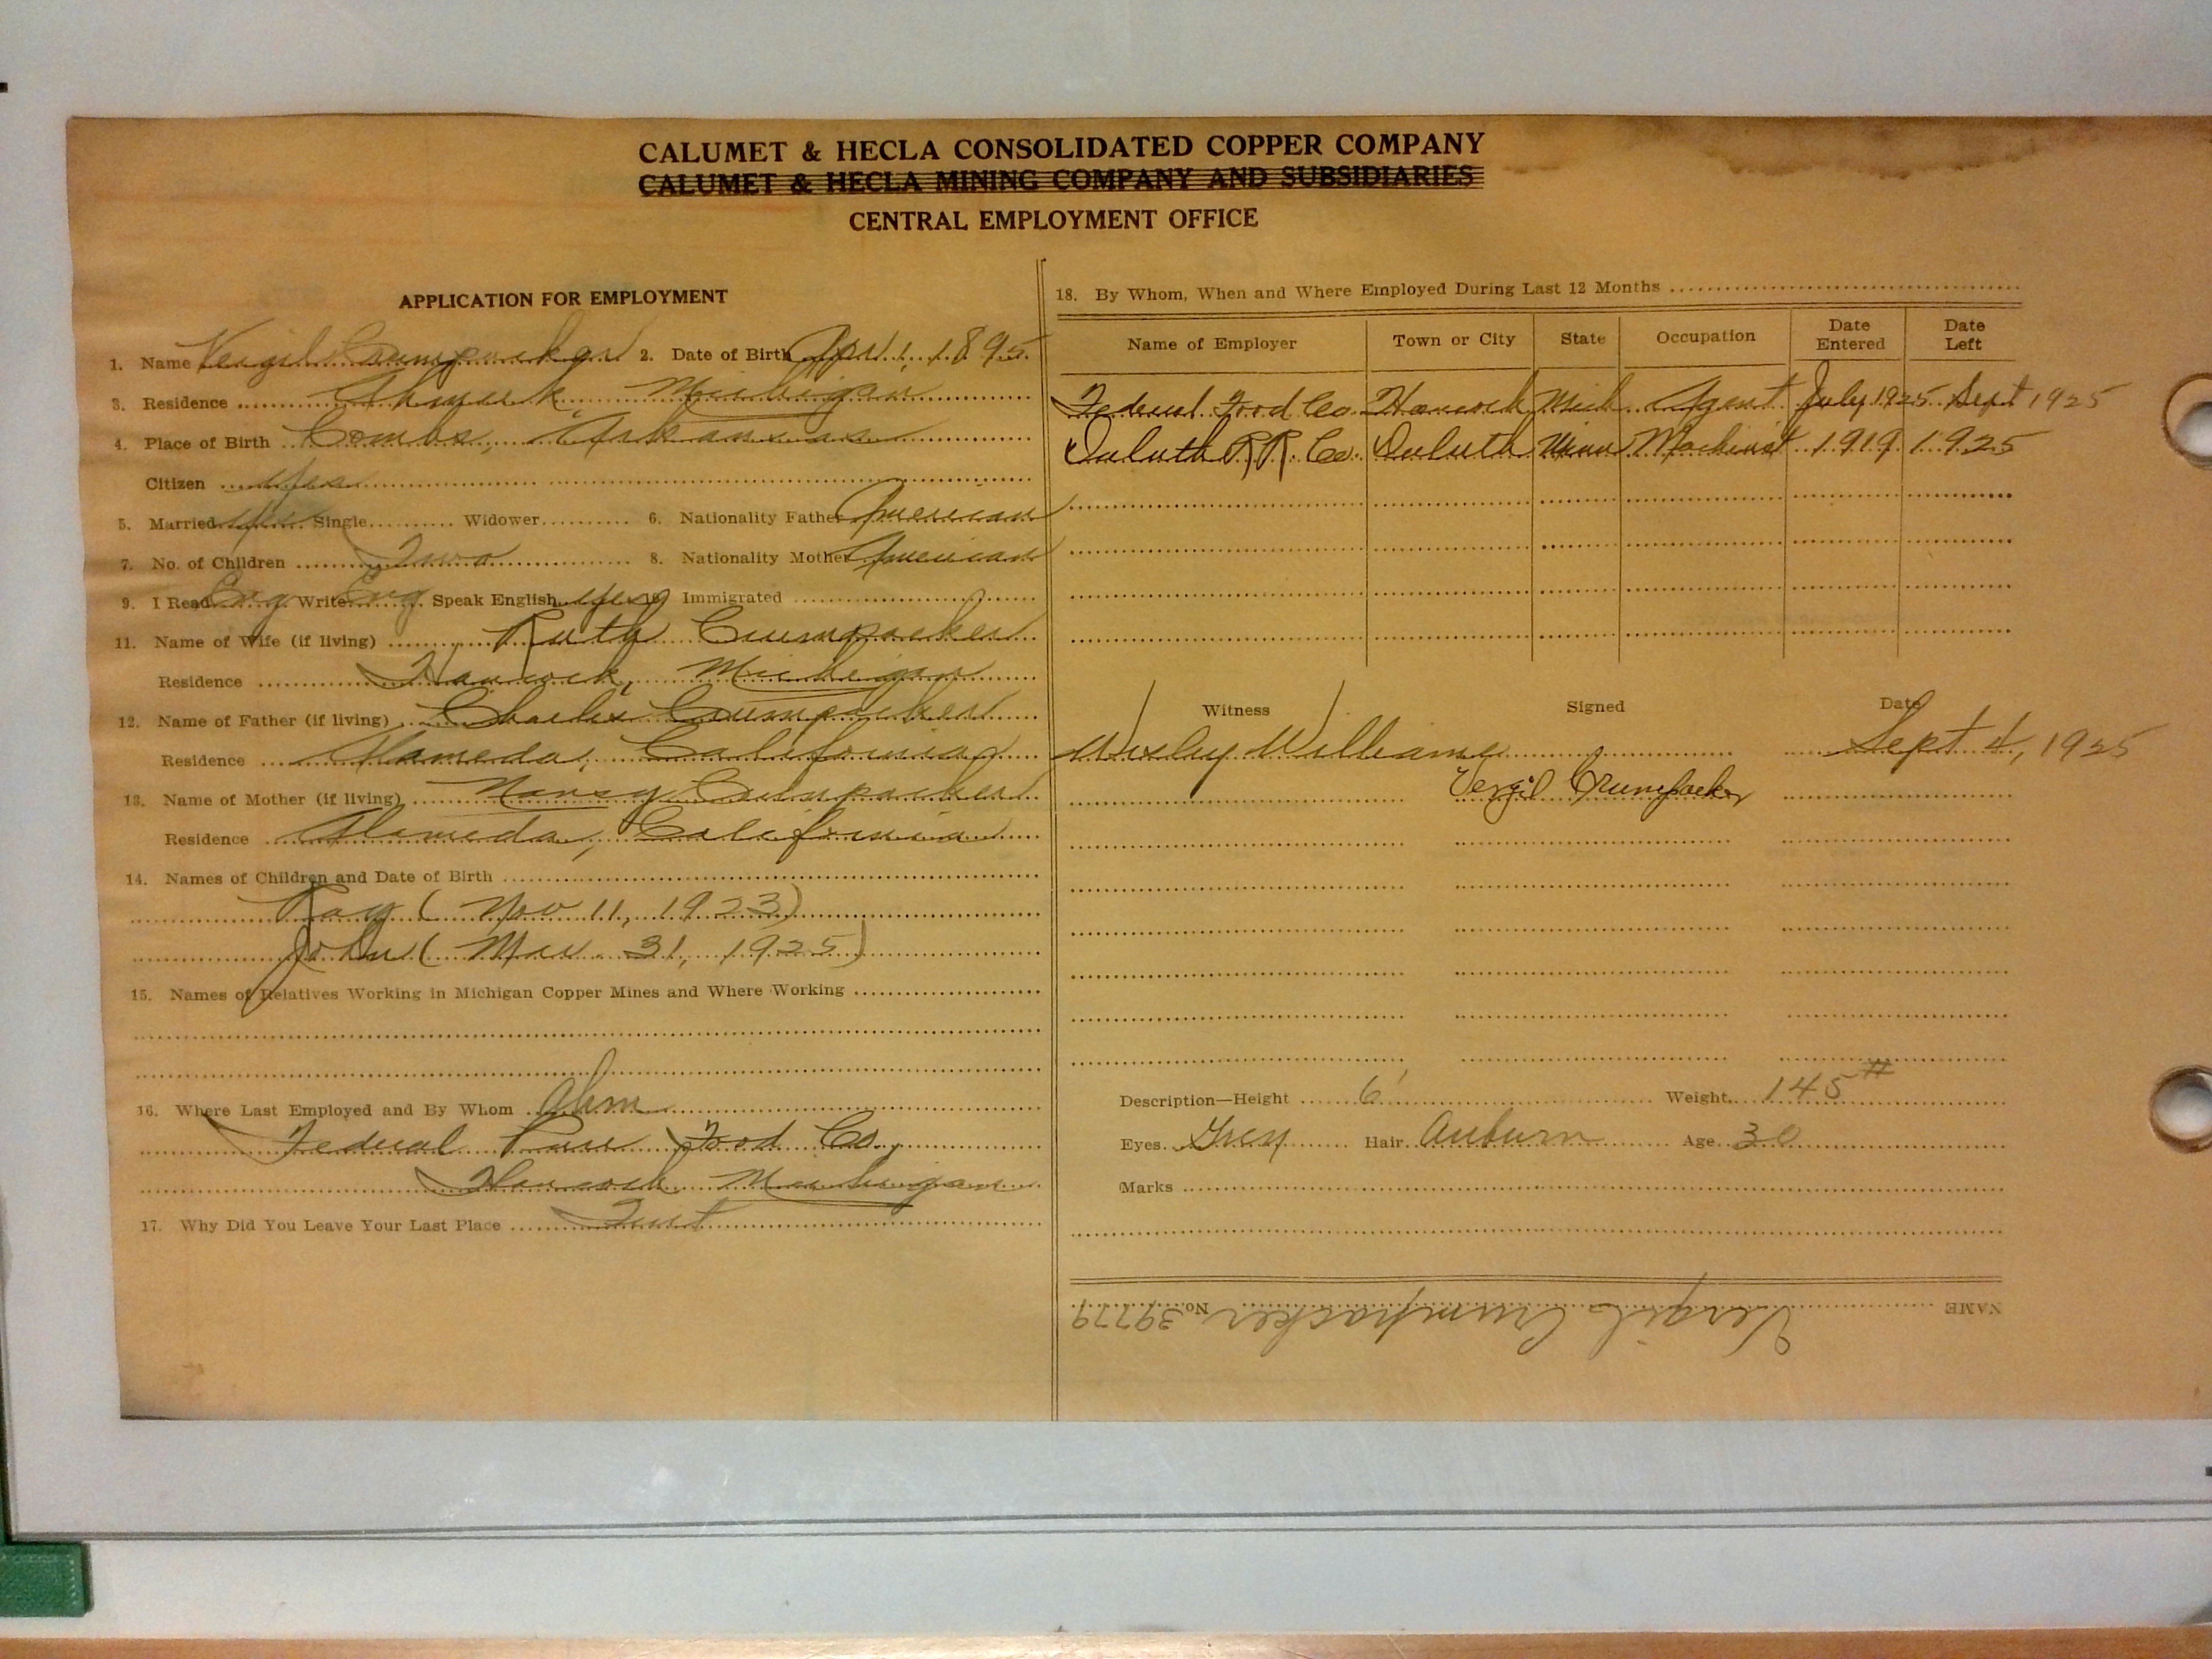 CALUMET & HECLA CONSOLIDATED COPPER COMPANY
CALUMET & HECLA MINING COMPANY AND SUBSIDIARIES
CENTRAL EMPLOYMENT OFFICE
APPLICATION FOR EMPLOYMENT
1. Name Vergil Crumpacker 2. Date of Birth Apr 1, 1895
3. Residence Ahmeek, Michigan
4. Place of Birth Combs, Arkansas
Citizen yes
5. Married yes Single Widower 6. Nationality Father American
7. No. of Children Two 8. Nationality Mother American
9. I Read Eng Write Eng Speak English yes 10. Immigrated
11. Name of Wife (if living) Ruth Crumpacker
Residence Hancock, Michigan
12. Name of Father (if living) Charles Crumpacker
Residence Alameda, California
13. Name of Mother (if living) Nancy Crumpacker
Residence Alameda, California
14. Names of Children and Date of Birth
Ray (Nov 11, 1923)
John (Mar. 31, 1925)
15. Names of Relatives Working in Michigan Copper Mines and Where Working
16. Where Last Employed and By Whom Ahm
Federal Pure Food Co,
Hancock Michigan
17. Why Did You Leave Your Last Place Quit
18. By Whom, When and Where Employed During Last 12 Months
Name of Employer Town or City State Occupation Date Entered Date Left
Federal Food Co. Hancock Mich Agent July 1925 Sept 1925
Duluth R.R. Co. Duluth Minn Machinist 1919 1925
Witness Signed Date
Wesley Williams Sept 4, 1925
Vergil Crumpacker
Description—Height 6' Weight 145#
Eyes Grey Hair Auburn Age 30
Marks
NAME Vergil Crumpacker No. 39779